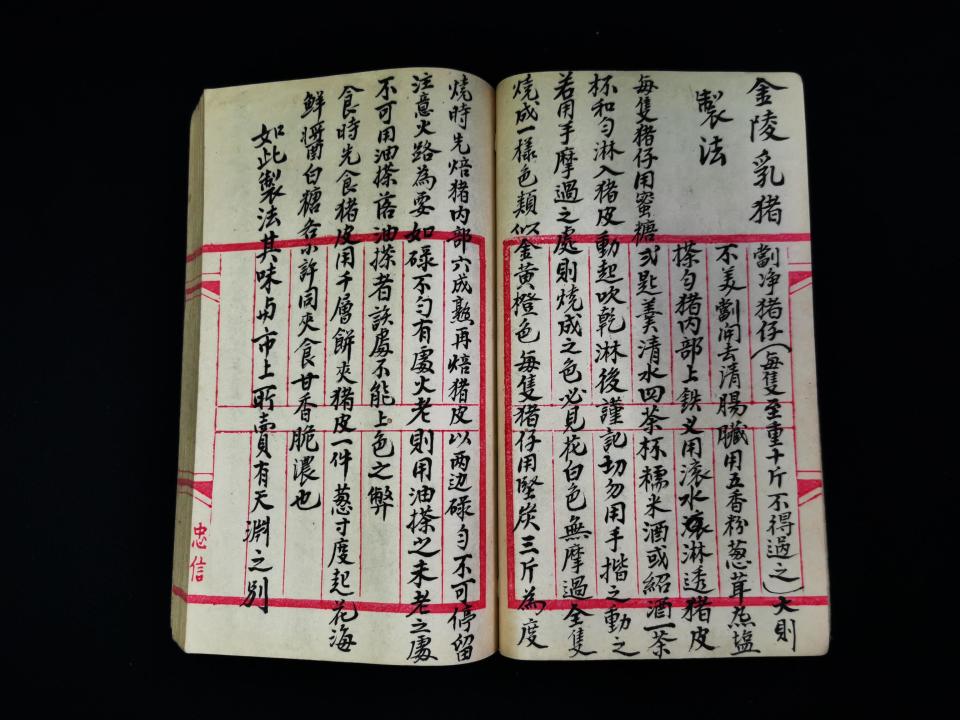 金陵乳猪
製法
劏净猪仔(每隻至重十斤不得過之)大則
不美劏開去清腸臟用五香粉葱茸燕塩
搽匀猪内部上鉄义用滚水滚淋透猪皮
每隻猪仔用蜜糖弍匙羹清水四茶杯糯米酒或紹酒一茶
杯和匀淋入猪皮動起吹乾淋後謹記切勿用手揩之動之
若用手摩過之處則燒成之色必見花白色無摩過全隻
燒成一樣色類似金黃橙色每隻猪仔用堅炭三斤為度
燒時先焙猪内部六成熟再焙猪皮以两边碌匀不可停留
注意火路為要如碌不匀有處火老則用油搽之未老之處
不可用油搽落油搽者該處不能上色之弊
食時先食猪皮用千層餅夾猪皮一件葱寸度起花海
鮮醬白糖各小許同夾食甘香脆濃也
如此製法其味与市上所賣有天淵之別
忠信